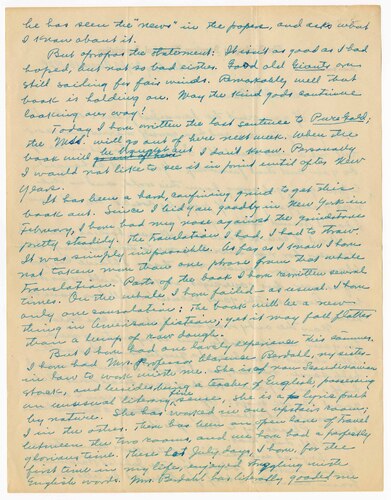 he has seen the "news" in the papers, and asks what
I know about it.
But apropos the statement: It isn't as good as I had
hoped, but not so bad either. Good old Giants are
still sailing for fair winds. Remarkably well that
book is holding on. May the kind gods continue
looking our way!
Today I have written the last sentence to Pure Gold;
the Mss. will go out of here next week. When the
book will be brought out I don't know. Personally
I would not like to see it in print until after New
Years.
It has been a hard, confining grind to get this
book out. Since I bid you goodby in New York in
February, I have had my nose against the grindstone
pretty steadily. The translation I had, I had to throw.
It was simply impossible. As far as I know I have
not taken more than one phrase from that whole
translation. Parts of the book I have rewritten several
times. On the whole I have failed – as usual. I have
only one consolation: The book will be a new
thing in American fiction; yet it may fall flatter
than a lump of raw dough.
But I have had one lovely experience this summer.
I have had Mrs. Professor Clarence Berdahl, my sister-
in-law to work with me. She is of now Scandinavian
stock, and besides being a teacher of English, possessing
an unusual literary sense, she is a lyric poet
by nature. She has worked in one upstairs room;
I in the other. There has been an open lane of travel
between the two rooms, and we have had a perfectly
glorious time. These hot July days, I have, for the
first time in my life, enjoyed juggling with
English words. Mrs. Berdahl has literally goaded me